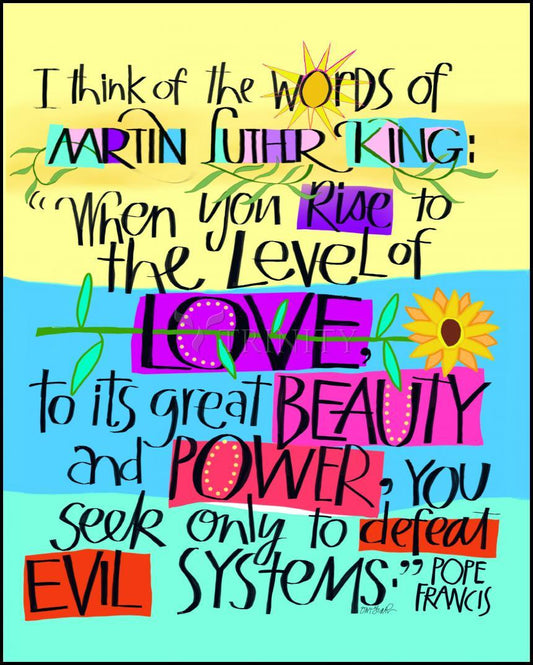 I think of the words of
MARTIN LUTHER KING:
"When you Rise to
the LeveL of
LOVE,
TRINITY
to its great BEAUTY
and POWER, YOU
seek only to defeat
EVIL SYSTEMS."
POPE
FRANCIS